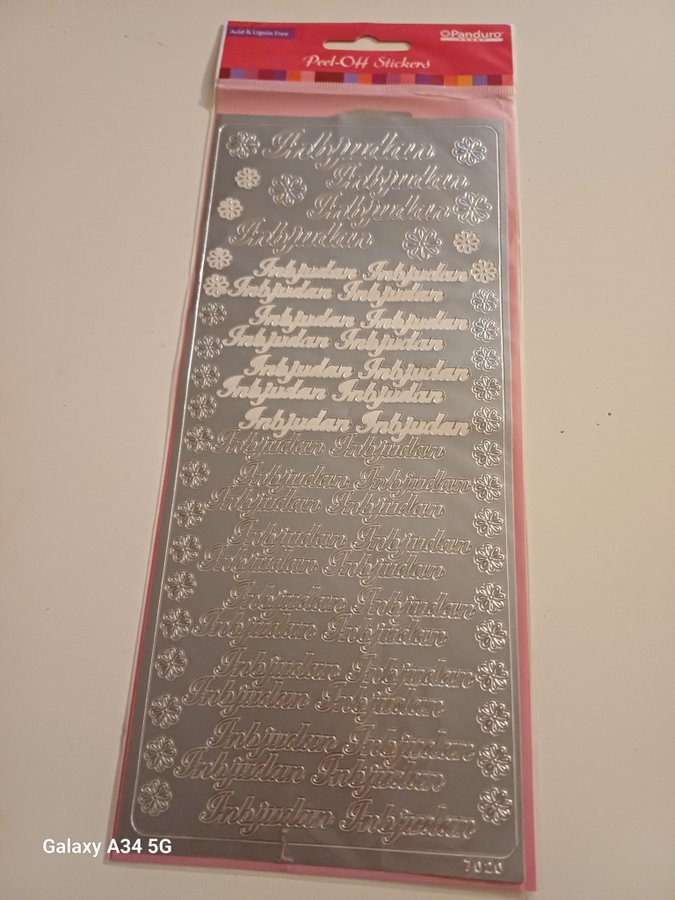 Acid & Lignin Free
Panduro
HOBBY
Peel-Off Stickers
Inbjudan
Inbjudan
Inbjudan
Inbjudan
Inbjudan Inbjudan
Inbjudan Inbjudan
Inbjudan Inbjudan
Inbjudan Inbjudan
Inbjudan Inbjudan
Inbjudan Inbjudan
Inbjudan Inbjudan
Inbjudan Inbjudan
Inbjudan Inbjudan
Inbjudan Inbjudan
Inbjudan Inbjudan
Inbjudan Inbjudan
Inbjudan Inbjudan
Inbjudan Inbjudan
Inbjudan Inbjudan
Inbjudan Inbjudan
Inbjudan Inbjudan
Inbjudan Inbjudan
Inbjudan Inbjudan
Galaxy A34 5G
7020